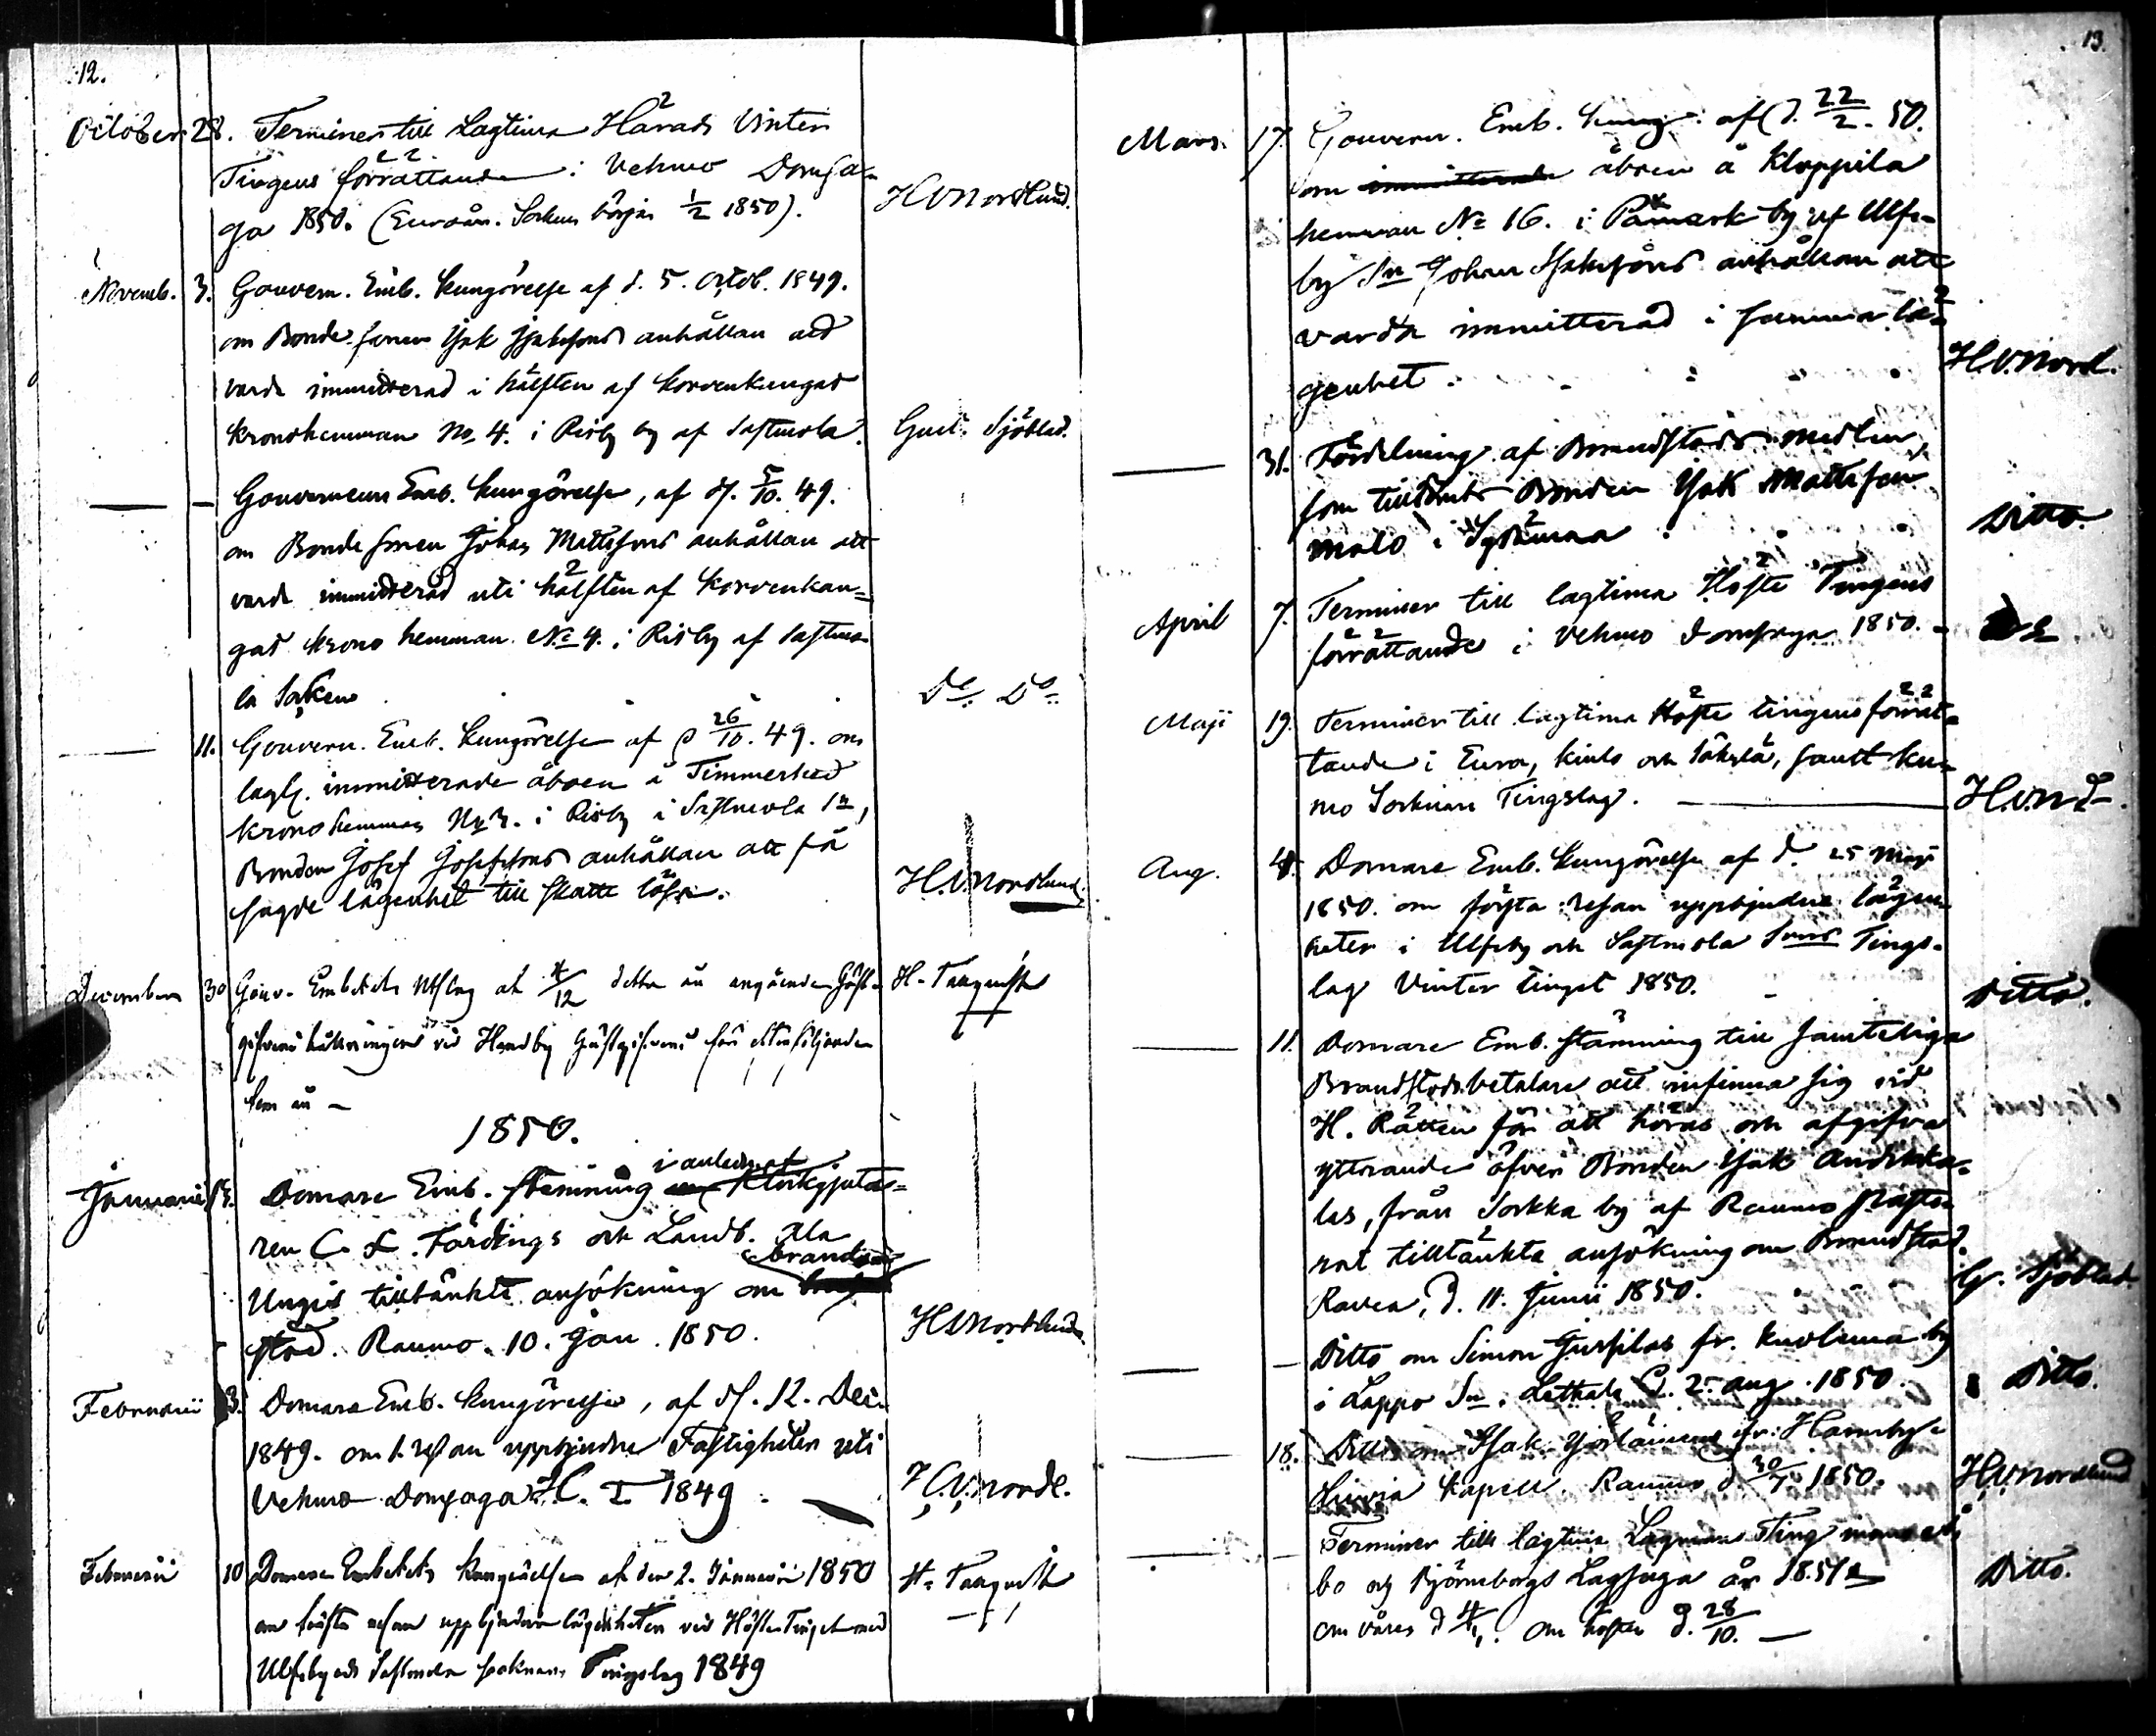 12.
October 28. Terminer till Lagtima Härads Vinter
Tingens förrättande i Vehmo Domsa-
ga 1850. (Euraån. Sockn börjas 1/2 1850). H V Nordlund.
Novemb. 3. Gouvern. Emb. Kungörelse af d. 5. Octob. 1849.
om Bonde sonen Isak Isaksons anhållan att
varda immitterad i hälften af Korvenkangas
Kronohemman No 4. i Risby by af Sastmola. Gust. Sjöblad.
— — Gouverneurs Emb. Kungörelse, af d. 5/10. 49.
om Bonde sonen Johan Mattssons anhållan att
varda immitterad uti hälften af Korvenkan=
gas Krono hemman No 4. i Risby af Sastmo-
la Socken Do Do
— 11. Gouvern. Emb. Kungörelse af d 26/10. 49. om
lagl. immitterade åboen å Timmerhed
Krono hemman No 3. i Risby i Sastmola Sn,
Bonden Josef Josefssons anhållan att få
sagde lägenhet till skatte lösa. H.V. Nordlund.
December 30 Gouv. Embetets Utslag af 4/12 detta år angående Gäst-
gifveri hållningen vid Handby Gästgifveri för efterföljande
fem år — H. Tamquist
1850.
Januarii 13. Domare Emb. stämning i anledn af Klockgjuta=
ren C. L. Färdings och Landb. Ala
Ungis tilltänkte ansökning om brand
stod. Raumo. 10. Jan. 1850. H V Nordlund.
Februarii 3. Domare Emb. Kungörelse, af d. 12. Dec.
1849. om 1. resan uppbjudne Fastigheter uti
Vehmo Domsaga H. T. 1849. H.V. Nordl.
Februarii 10 Domare Embetets Kungörelse af den 2. Januarii 1850
om första resan uppbjudna lägenheter vid Höste Tinget med
Ulfsby och Sastmola Socknars Tingslag 1849 H. Tamquist
13.
Mars. 17. Gouvern. Emb. Kung. af d. 22/2. 50.
om immitterade åboen å Kloppila
hemman No 16. i Påmark by af Ulfs-
by Sn Johan Isakssons anhållan att
varda immitterad i samma lä-
genhet. H.V. Nord.
— 31. Fördelning af Brandstods medlen,
som tilldömts Bonden Isak Mattsson
Malo i Sydänmaa Ditto.
April 7. Terminer till lagtima Höste Tingens
förrättande i Vehmo domsaga 1850. Do
Maji 19. Terminer till lagtima Höste tingens förrät-
tande i Eura, Kiulo och Säkylä, samt Ku-
mo Socknars Tingslag. — H.V.Nd.
Aug. 4. Domare Emb. Kungörelse af d. 25 Maji
1850. om första resan uppbjudne lägen-
heter i Ulfsby och Sastmola Snrs Tings-
lag Vinter tinget 1850. Ditto.
— 11. Domare Emb. stämning till samtelige
Brandstods betalare att infinna sig vid
H. Rätten för att höras och afgifva
yttrande öfver Bonden Isak Anderka-
las, från Sorkka by af Raumo Pasto-
rat tilltänkta ansökning om Brandstod.
Ravea, d. 11. Junii 1850. G. Sjöblad
— — Ditto om Simon Jussilas fr. Kuolimaa by
i Lappo Sn. Lethala d. 2. Aug. 1850. Ditto.
— 18. Ditto om Isak Yrjölänens fr. Harneby i
Hinnia Kapell. Raumo d. 30/7 1850. H.V. Nordlund
— — Terminer till lagtima Lagmans Ting inom
bo och Björneborgs Lagsaga år 1851
om våren d 4/1. om hösten d. 28/10. — Ditto.